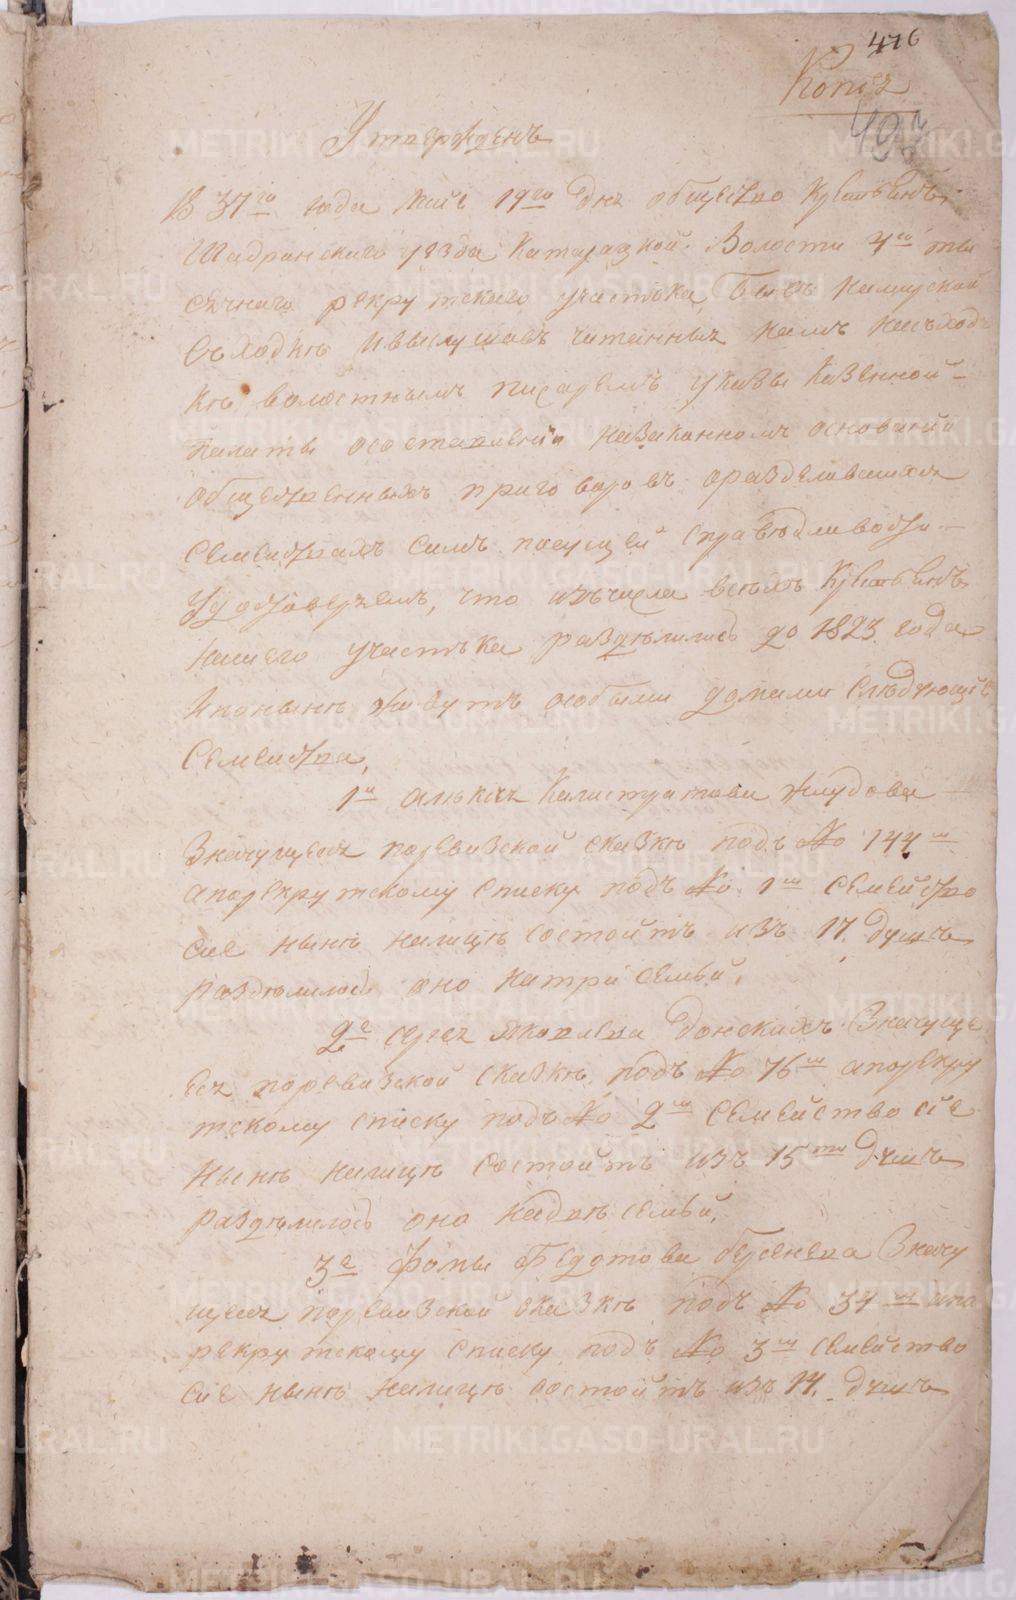 476
Копiя
492
Утвержденъ
В 37го года Маiя 19го дня общество Крестьянъ
Шадринскаго уезда Катарацкой Волости 4го ты
сячнаго рекрутскаго участька, бывъ
съходкѣ Ивыслушавъ читанныя намъ насъход
кѣ волостнымъ писаремъ указы Казенной
палаты осоставленiи назаконномъ основанiи
общественныхъ приговоровъ оразделившихся
семействахъ симъ посущей справедливости
Удостоверяемъ, что изъчисла всехъ Крестьянъ
нашего участька разделились до 1823. года
Ипонынѣ живутъ особыми домами Следующiе
Семейства,
1е Калистратова Жлудова
Значущеся поревизской сказкѣ подъ № 144м
апорекрутскому списку подъ № 1м семейство
сiе нынѣ налицѣ состоитъ изъ 17. душъ
разделилось оно натри семьи.
2е сергея Яковлева Донскихъ Значуще
еся поревизской сказкѣ подъ № 76м апорекру
тскому списку подъ № 2м семейство сiе
нынѣ налицѣ состоитъ изъ 15ти душъ
разделилось оно надвѣ семьи.
3е Фомы Федотова берсенева Значу
щееся поревизской сказкѣ подъ № 34м апо
рекрутскому списку подъ № 3м семейство
сiе нынѣ налицѣ состоитъ изъ 14. душъ
METRIKI.GASO-URAL.RU